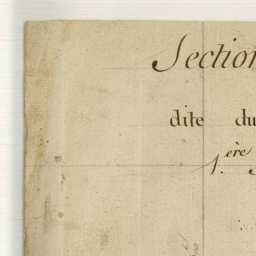 Section
dite du
1.ère